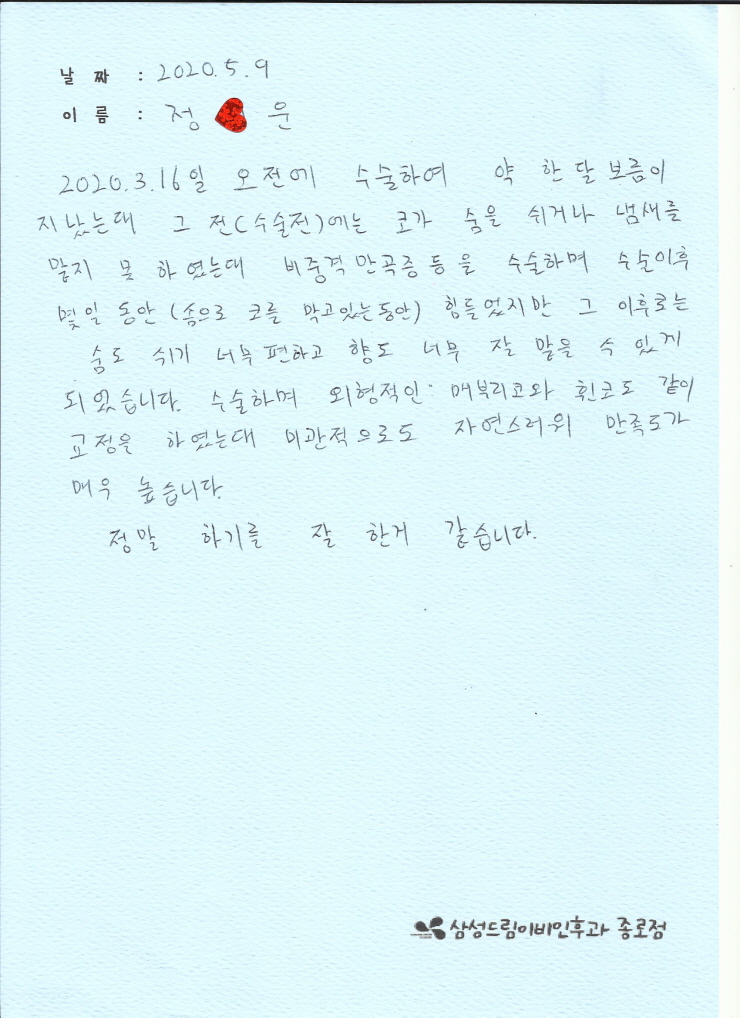 날 짜 : 2020.5.9
이 름 : 정 운
2020.3.16일 오전에 수술하여 약 한달보름이
지났는데 그 전(수술전)에는 코가 숨을 쉬거나 냄새를
맡지 못 하였는데 비중격만곡증등을 수술하며 수술이후
몇일 동안 (솜으로 코를 막고있는동안) 힘들었지만 그 이후로는
숨도 쉬기 너무 편하고 향도 너무 잘 맡을 수 있게
되었습니다. 수술하며 외형적인 매부리코와 휜코도 같이
교정을 하였는데 미관적으로도 자연스러워 만족도가
매우 높습니다.
정말 하기를 잘 한거 같습니다.
삼성드림이비인후과 종로점